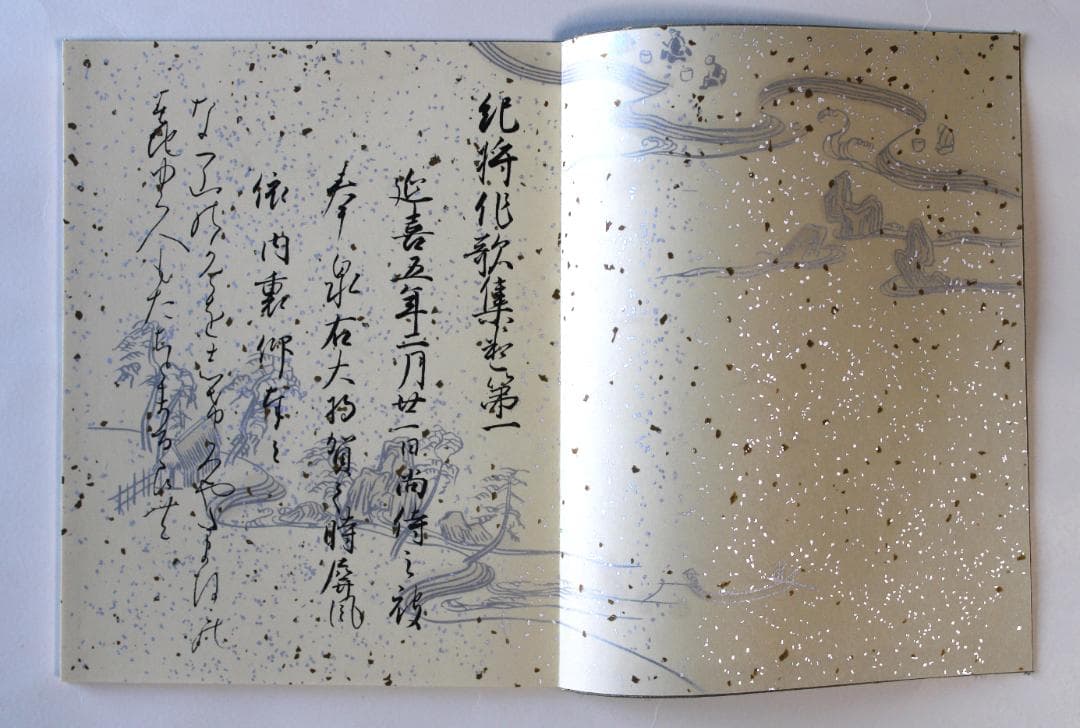 紀将作歌集巻第一
延喜五年二月廿一日尚侍之被
奉泉右大将賀之時屏風
依内裏仰奉之
なつ山のかけをしけみやたまほこの
みちゆく人もたちとまるらむ